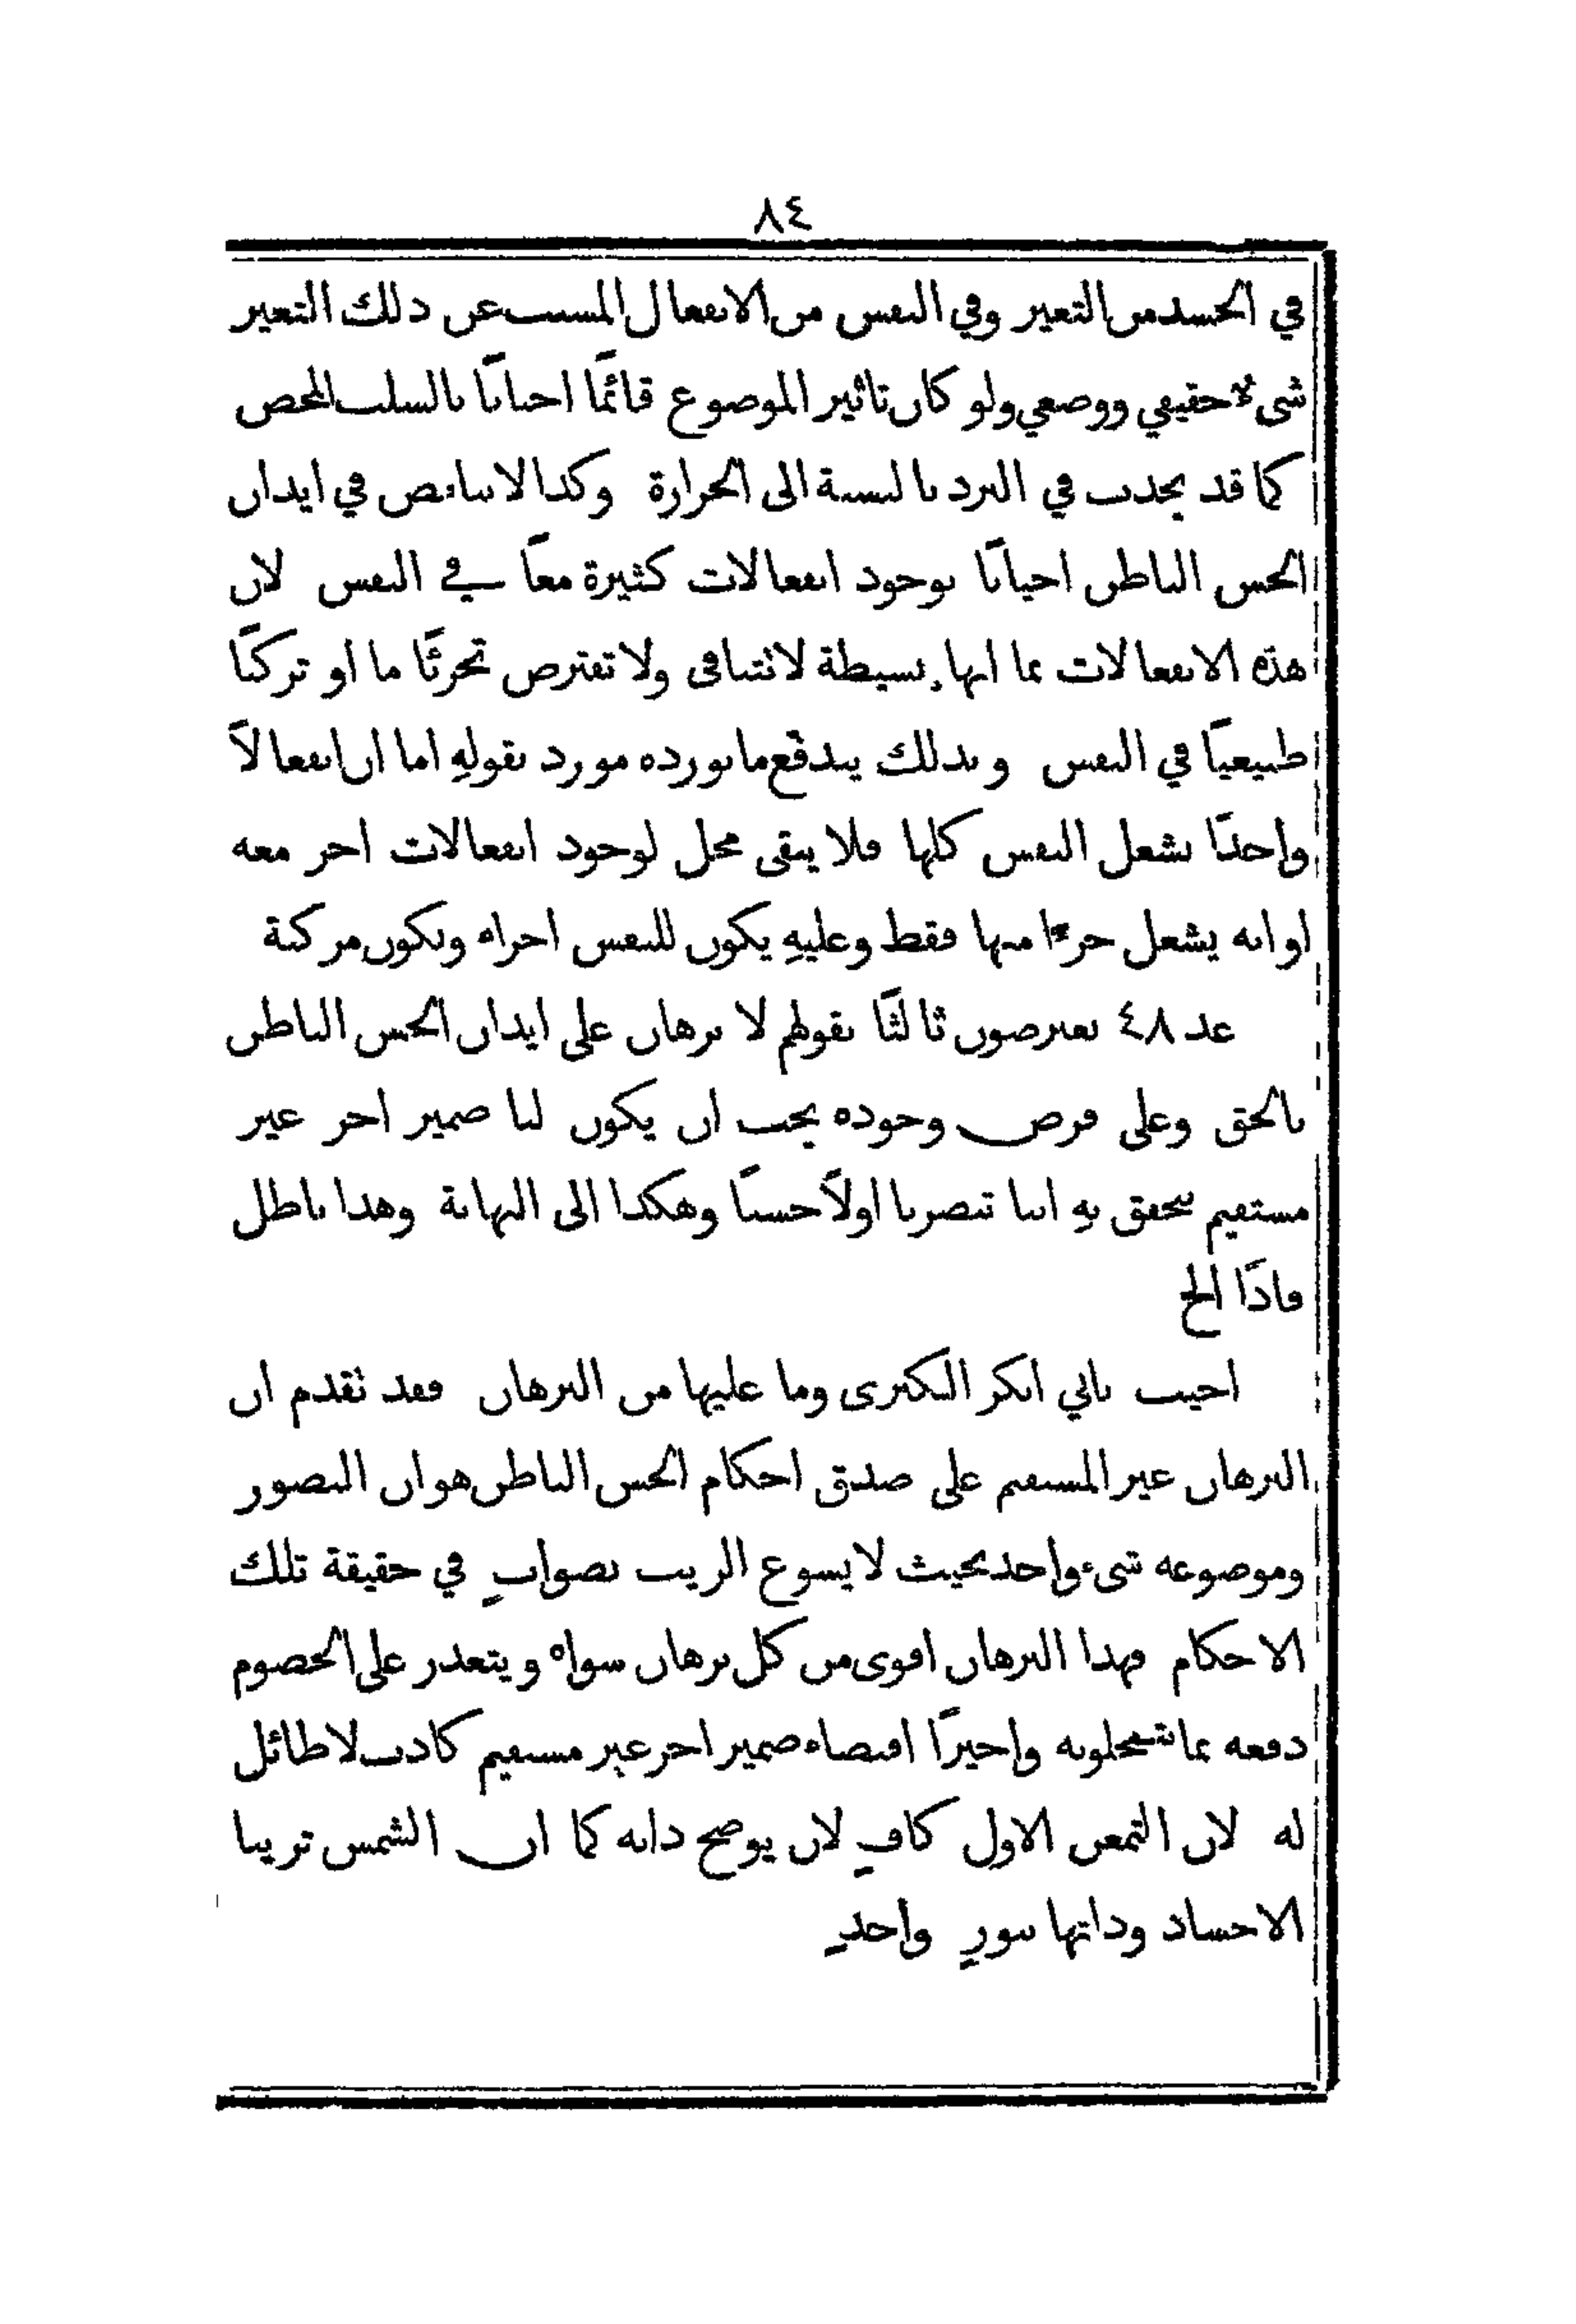 ٨٤
في الجسد من التغير وفي النفس من الانفعال المسبب عن ذلك التغير
شيءٌ حقيقي ووضعي ولو كان تاثير الموضوع قائمًا احيانًا بالسلب المحض
كما قد يحدث في البرد بالنسبة الى الحرارة وكذا لا يناقض في ايذان
الحس الباطن احيانًا بوجود انفعالات كثيرة معًا في النفس لان
هذه الانفعالات بما انها بسيطة لا تتنافى ولا تفترض تجزئًا ما او تركبًا
طبيعيًا في النفس وبذلك يندفع ما يورده مورد بقولهِ اما ان انفعالاً
واحدًا يشغل النفس كلها فلا يبقى محل لوجود انفعالات اخر معه
او انه يشغل جزءًا منها فقط وعليهِ يكون للنفس اجزاء وتكون مركبة
عد ٤٨ يعترضون ثالثًا بقولهم لا برهان على ايذان الحس الباطن
بالحق وعلى فرض وجوده يجب ان يكون لنا ضمير اخر غير
مستقيم نتحقق بهِ اننا تبصرنا اولاً حسنًا وهكذا الى النهاية وهذا باطل
فاذًا الخ
اجيب باني انكر الكبرى وما عليها من البرهان فقد تقدم ان
البرهان غير المستقيم على صدق احكام الحس الباطن هو ان التصور
وموضوعه شيء واحد بحيث لا يسوغ الريب بصوابٍ في حقيقة تلك
الاحكام فهذا البرهان اقوى من كل برهان سواه ويتعذر على الخصوم
دفعه بما يتمحلونه واخيرًا اقتضاء ضمير اخر غير مستقيم كاذب لا طائل
له لان التمعن الاول كافٍ لان يوضح ذاته كما ان الشمس ترينا
الاجساد وذاتها بنورٍ واحدٍ